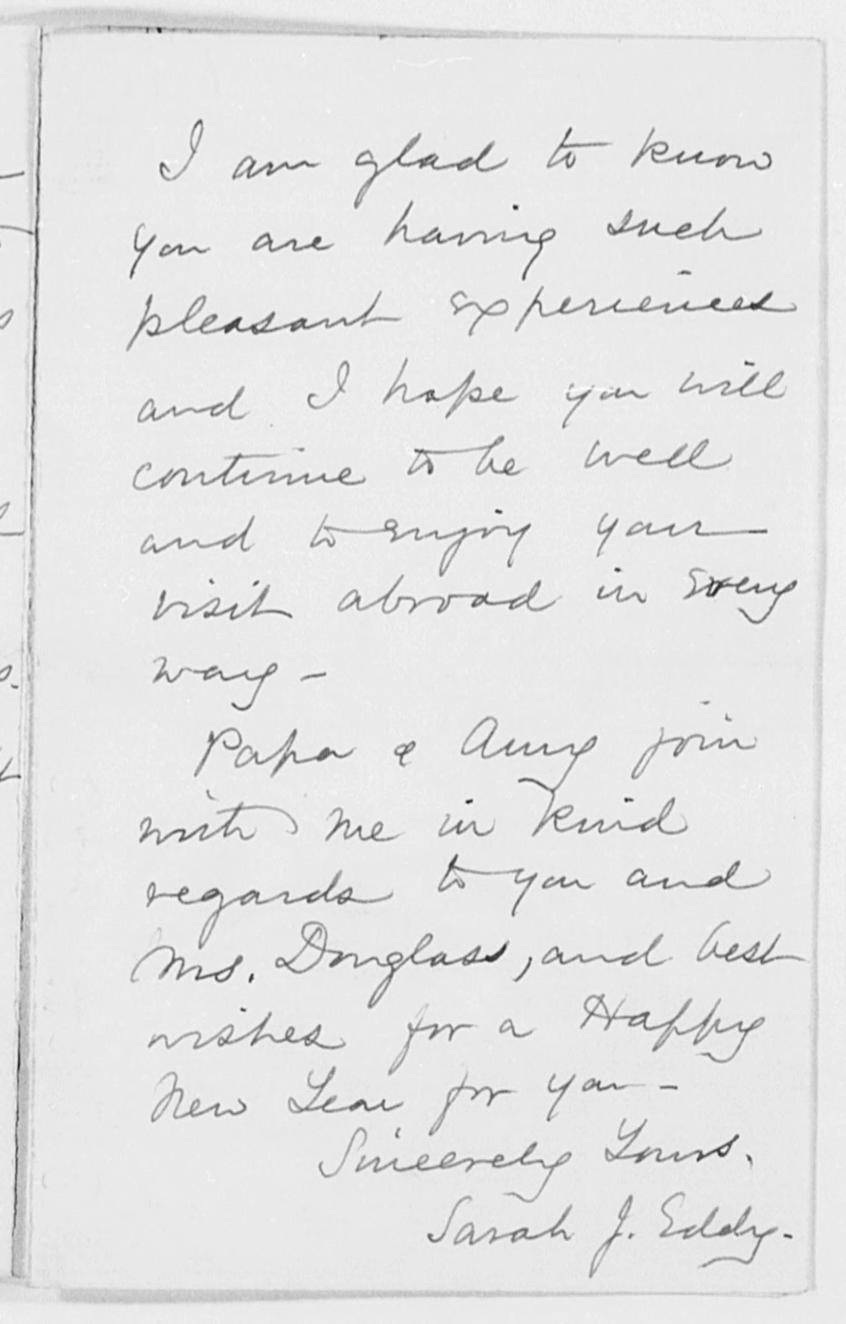 I am glad to know
you are having such
pleasant experiences
and I hope you will
continue to be well
and to enjoy your
visit abroad in every
way –
Papa & Amy join
with me in kind
regards to you and
Mrs. Douglass, and best
wishes for a Happy
New Year for you –
Sincerely Yours.
Sarah J. Eddy.